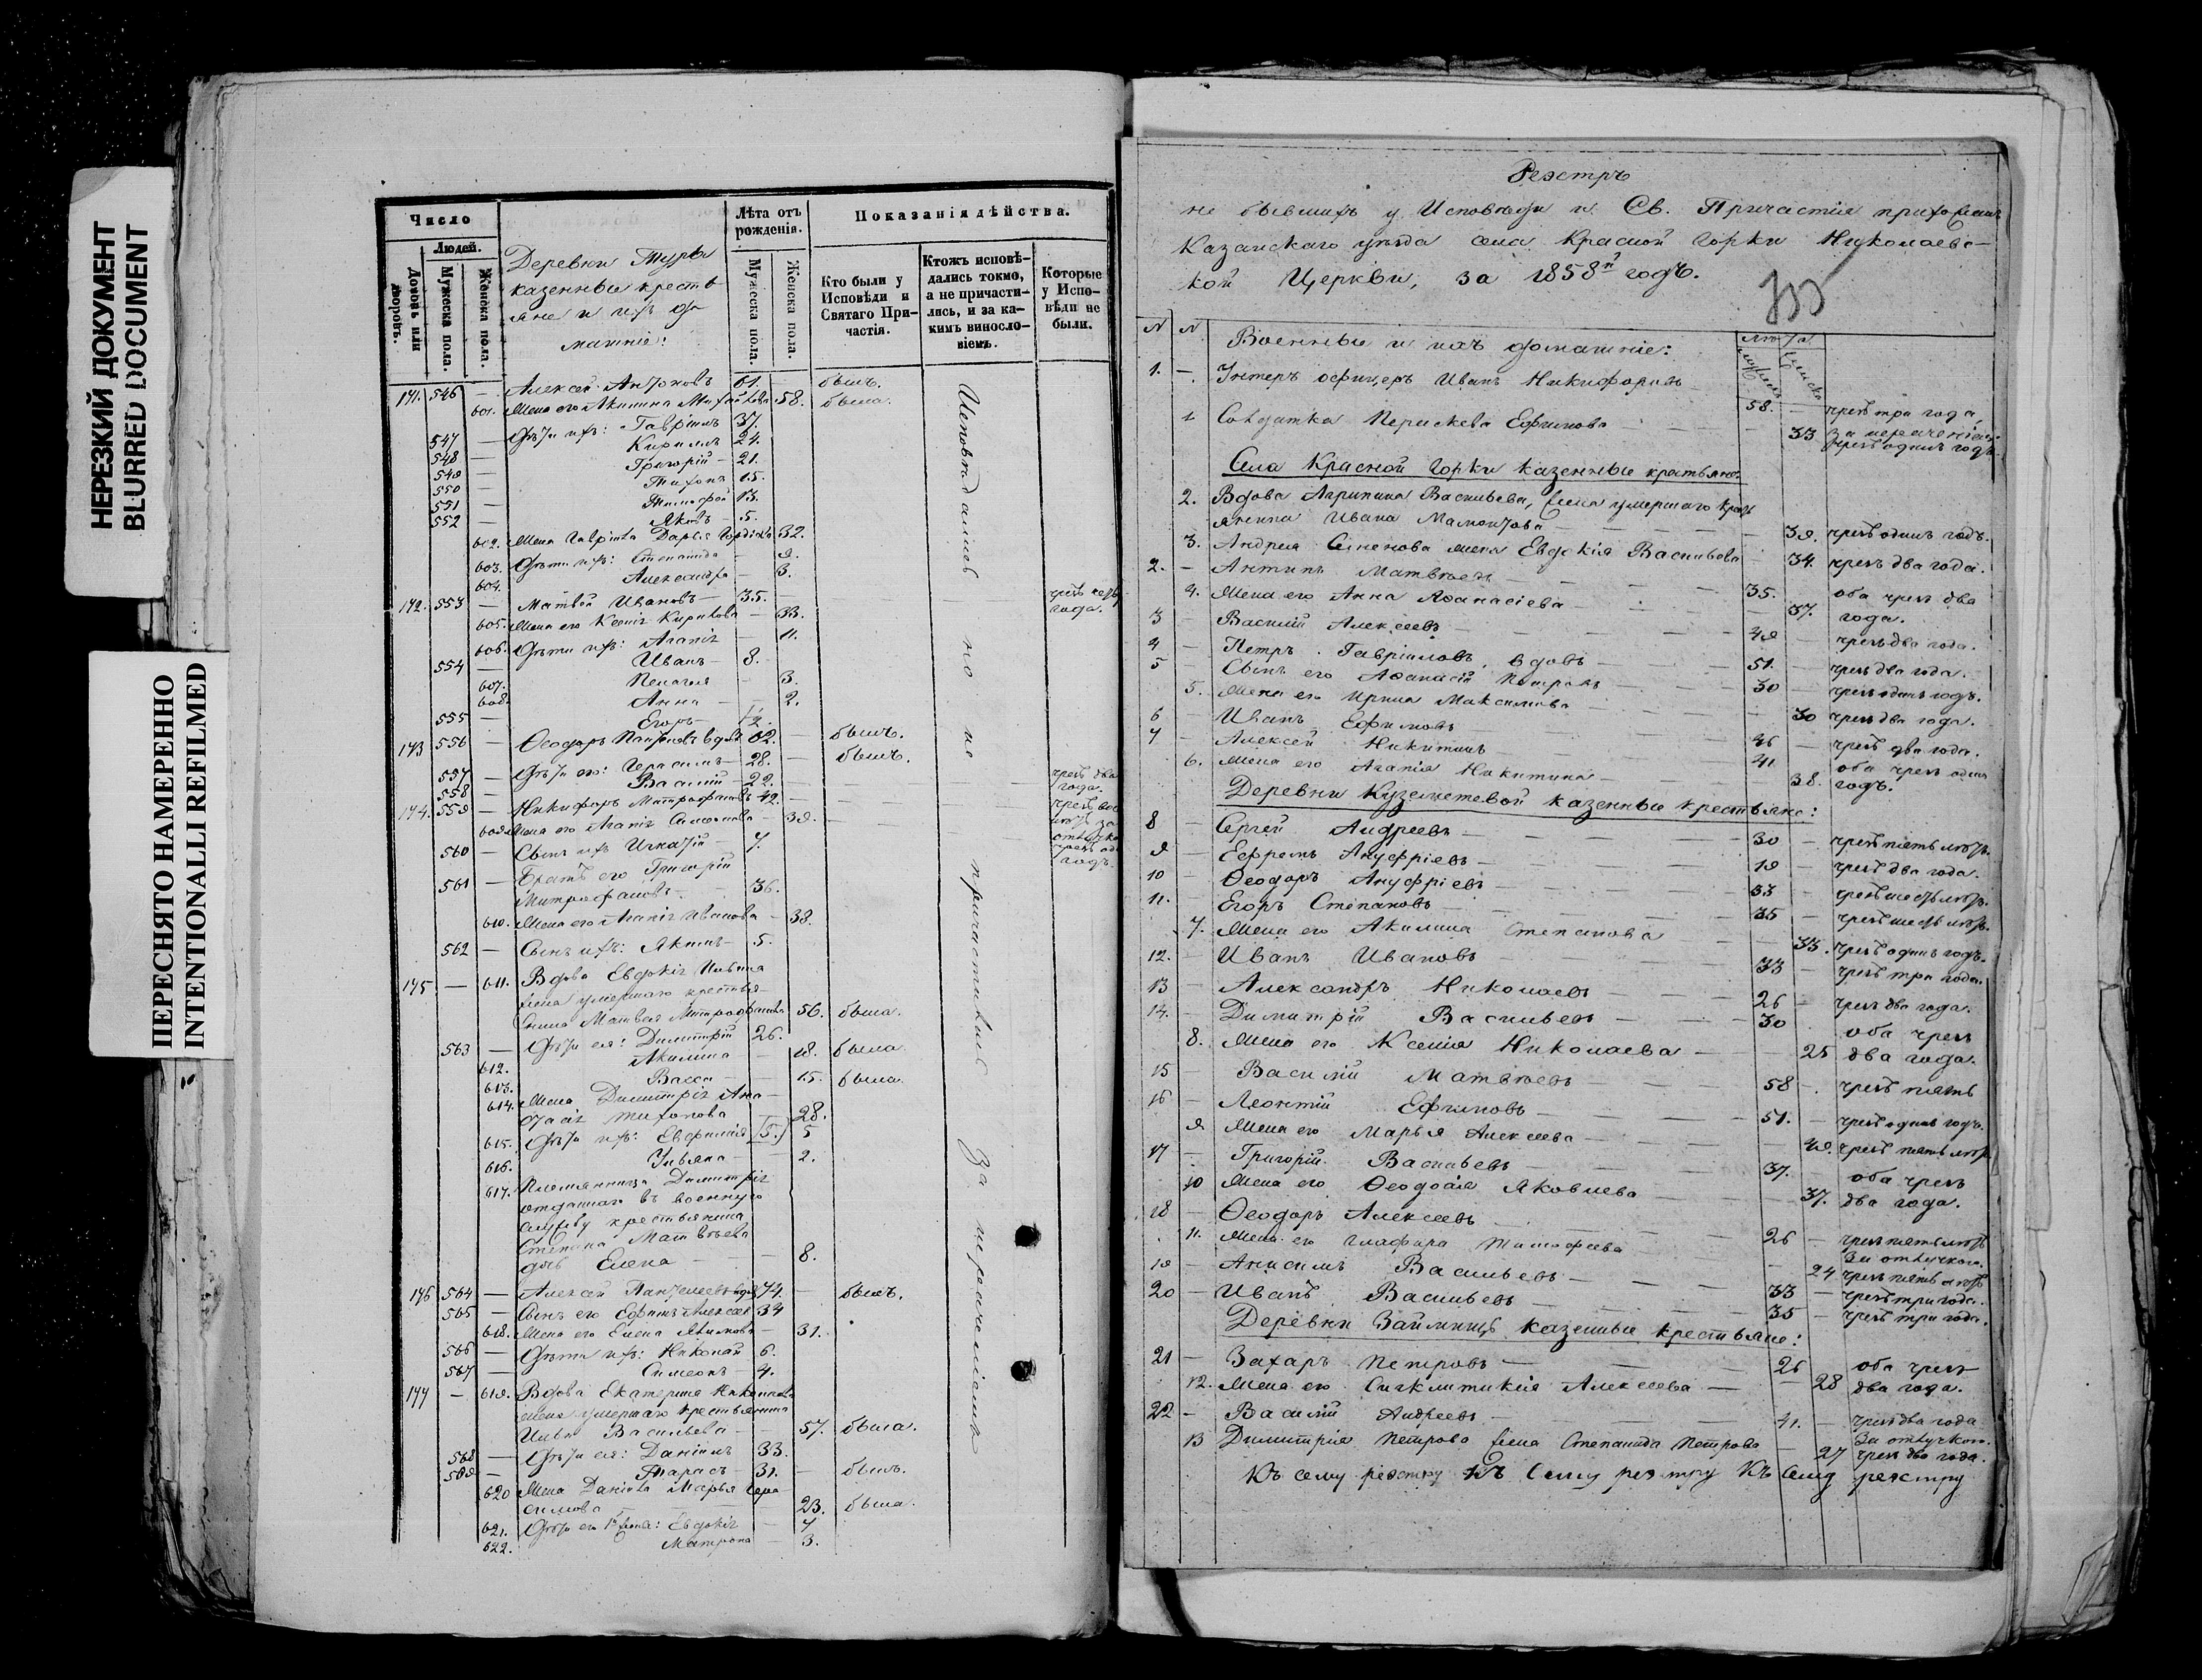 НЕРЕЗКИЙ ДОКУМЕНТ
BLURRED DOCUMENT
ПЕРЕСНЯТО НАМЕРЕННО
INTENTIONALLI REFILMED
Число
Людей.
Домовъ или дворовъ.
Мужеска пола.
Женска пола.
Деревни Туры
казенные кресть
яне и ихъ до
машніе:
Лѣта отъ рожденія.
Мужеска пола.
Женска пола.
Показанія дѣйства.
Кто были у Исповѣди и Святаго Причастія.
Ктожъ исповѣдались токмо, а не причастились, и за какимъ винословіемъ.
Которые у Исповѣди не были.
Исповѣдались но не причастились За пересеченіемъ
171. 546 — Алексѣй Антоновъ 61. — былъ.
601. Жена его Акилина Михайлова 58. была.
547 — Дѣти ихъ: Гавріилъ 37.
548 — Кириллъ 24.
549 — Григорій — 21.
550 — Тихонъ 15.
551 — Тимофей 13.
552 — Яковъ — 5.
602. Жена Гавріила Дарья 32.
603. Дѣти ихъ: Степанида — 9.
604. Александра — 3.
172. 553 — Матвѣй Ивановъ — 35. —
года.
605. Жена его Ксенія Кирилова — 33.
606. Дѣти ихъ: Агапія — 11.
554 — Иванъ — 8.
607. Пелагея — 3.
608. Анна — 2.
555 — Егоръ —
173 556 — Ѳеодоръ вдовъ 62. — былъ.
557 — Дѣти его: Герасимъ — 28. — былъ.
558 — Василій — 22. чрезъ два года.
174. 559 — Никифоръ Митрофановъ 42. —
609. Жена его Агапія Симеонова — 39.
560 — Сынъ ихъ Игнатій — 7.
561 — Братъ его Григорій
Митрофановъ — 36.
610. Жена его Агапія Иванова — 38.
562 — Сынъ ихъ: Якимъ — 5.
175 — 611. Вдова Евдокія Ильина
жена умершаго крестья
нина Матвея Митрофанова 56. была.
563 — Дѣти ея: Димитрій 26.
612. Акилина — 18. была.
613. Васса — 15. была.
614. Жена Димитрія Ана
стасія Тихонова 28.
615. Дѣти ихъ: Евфимія (5.) 5
616. Ульяна — 2.
617. Племянница Димитрія
отданнаго въ военную
службу крестьянина
Степана Матвѣева
дочь Елена — 8.
176 564 — Алексѣй 74. — былъ.
565 — Сынъ его Ефимъ Алексѣевъ 34
618. Жена его Елена Якимова — 31.
566 — Дѣти ихъ: Николай 6.
567 — Симеонъ 4.
177 — 619. Вдова Екатерина
жена умершаго крестьянина
Ильи Васильева — 57. была.
568 — Дѣти ея: Даніилъ 33.
569 — Тарасъ — 31. — былъ.
620 Жена Даніила Марья Гера
симова 23. была.
621. Дѣти его 1й жены: Евдокія — 7
622. Матрона — 3.
Реэстръ
не бывшихъ у Исповѣди и Св. Причастія прихожанъ
Казанскаго уѣзда села Красной Горки Николаевс-
кой Церкви, за 1858й годъ.
N N
Военные и ихъ домашніе:
лѣта
1. — Унтеръ офицеръ Иванъ Никифоровъ 58. — чрезъ три года,
1 Солдатка Ефимова 33 чрезъ одинъ годъ.
Села Красной Горки казенные крестьяне:
2. Вдова Агрипина Васильева, жена умершаго кресть
янина Ивана Мамонтова — 39. чрезъ одинъ годъ.
3. Андрея Семенова жена Евдокія Васильева 34. чрезъ два года.
2. — Антипъ Матвѣевъ — 35. оба чрезъ два
4. Жена его Анна Аѳанасіева — 37. года.
3 — Василій Алексѣевъ — 49 — чрезъ два года.
4 — Петръ Гавріиловъ, вдовъ — 51. — чрезъ два года.
5 Сынъ его Аѳанасій Петровъ 30 — чрезъ одинъ годъ.
5. Жена его Ирина Максимова — 30 чрезъ два года.
6 — Иванъ Ефимовъ — 46 — чрезъ два года.
7 — Алексѣй Никитинъ 41. оба чрезъ одинъ
6. Жена его Агапія Никитина — 38. годъ.
Деревни Куземетевой казенные крестьяне:
8 — Сергѣй Андреевъ — 30 — чрезъ пять лѣтъ.
9 — Ефремъ Ануфріевъ — 19 — чрезъ два года.
10 — Ѳеодоръ Ануфріевъ — 33 — чрезъ шесть лѣтъ.
11. — Егоръ Степановъ — 35 — чрезъ шесть лѣтъ.
7. Жена его Акилина Степанова — 33. чрезъ одинъ годъ.
12. — Иванъ Ивановъ — 33 — чрезъ три года.
13 — Александръ Николаевъ — 26 — чрезъ два года.
14. — Димитрій Васильевъ — 30 оба чрезъ
8. Жена его Ксенія Николаева — 25 два года.
15 — Василій Матвѣевъ — 58 чрезъ пять
16 — Леонтій Ефимовъ — 51. — чрезъ одинъ годъ.
9 Жена его Марья Алексѣева — 49. чрезъ пять лѣтъ.
17 — Григорій Васильевъ — 37. оба чрезъ
10 Жена его Ѳеодосія Яковлева — 37. два года.
18 — Ѳеодоръ Алексѣевъ — 26 — чрезъ пять лѣтъ
11. Жена его Глафира Тимофеева — 24 За отлучкою. чрезъ пять лѣтъ
19 — Анисимъ Васильевъ — 33 — чрезъ три года.
20 — Иванъ Васильевъ 35 — чрезъ три года.
Деревни Займищъ казенные крестьяне:
21 — Захаръ Петровъ — 26 оба чрезъ
12. Жена его Синклитикія Алексѣева — 28 два года.
22 — Василій Андреевъ — 41. — чрезъ два года
13 Димитрія Петрова жена Степанида Петрова — 27 За отлучкою. чрезъ два года.
Къ сему реэстру Къ сему реэстру Къ сему реэстру